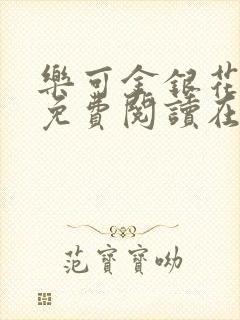 樂可金銀花
免費閱讀在
范寶寶呦